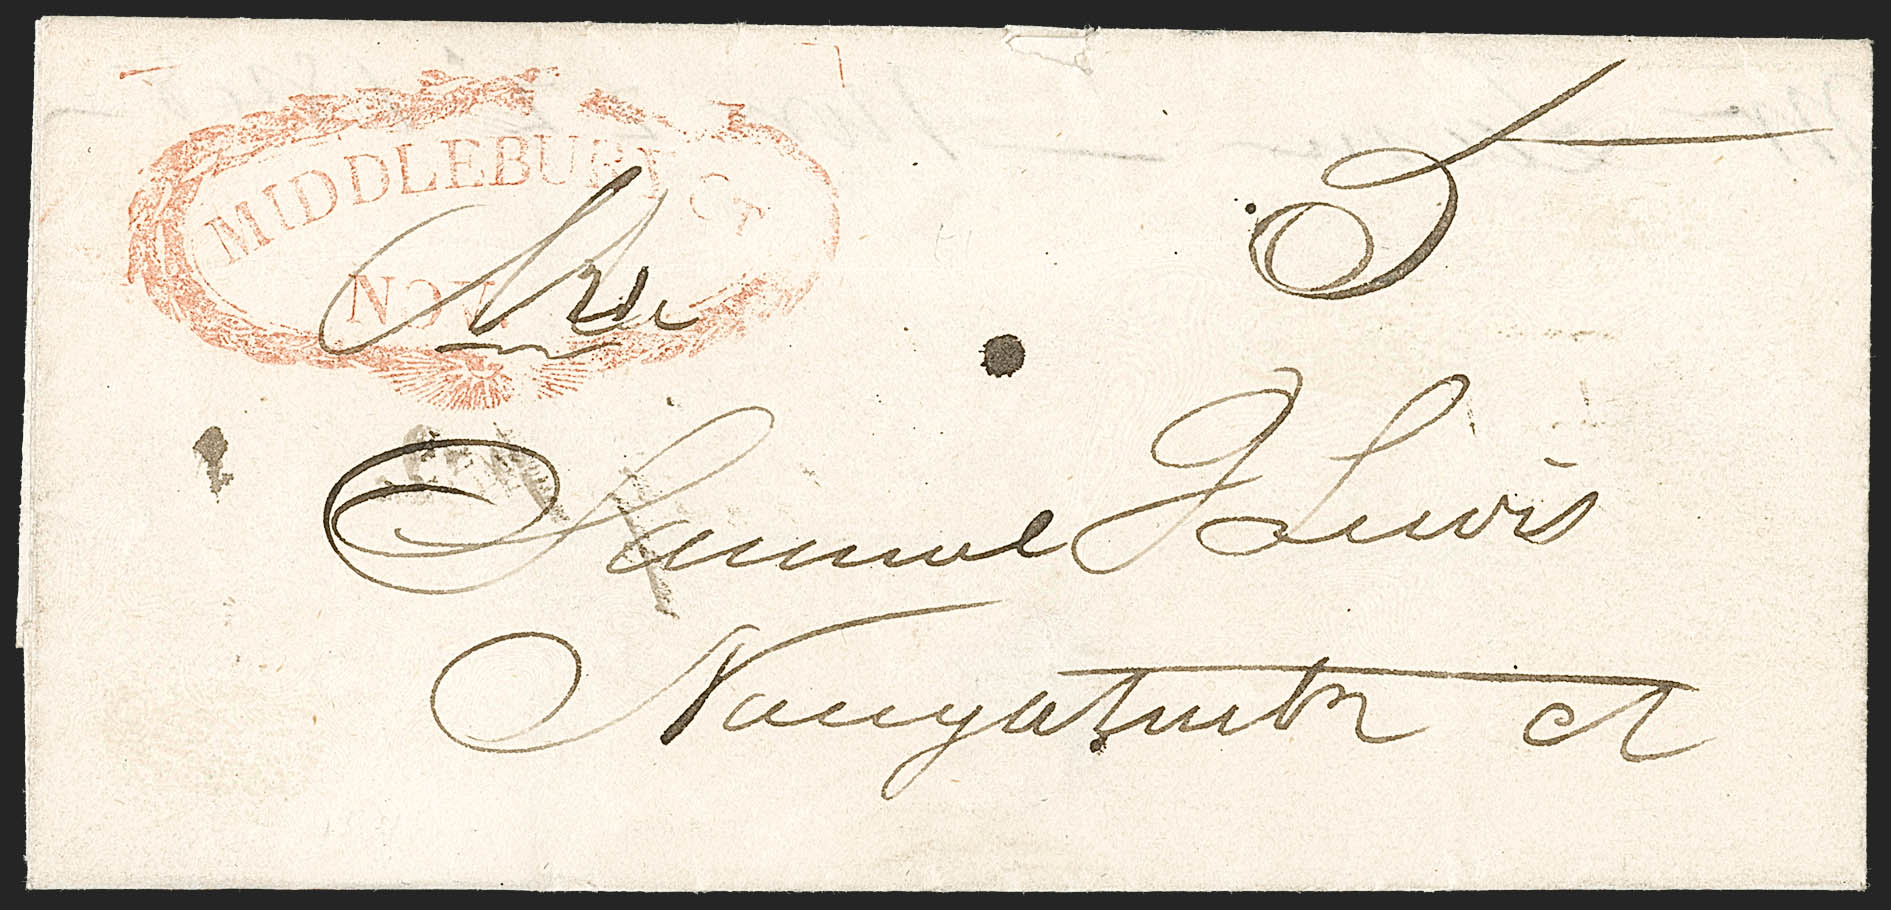 MIDDLEBURY CT
NOV.
5
Samuel J Lewis
Naugatuck ct